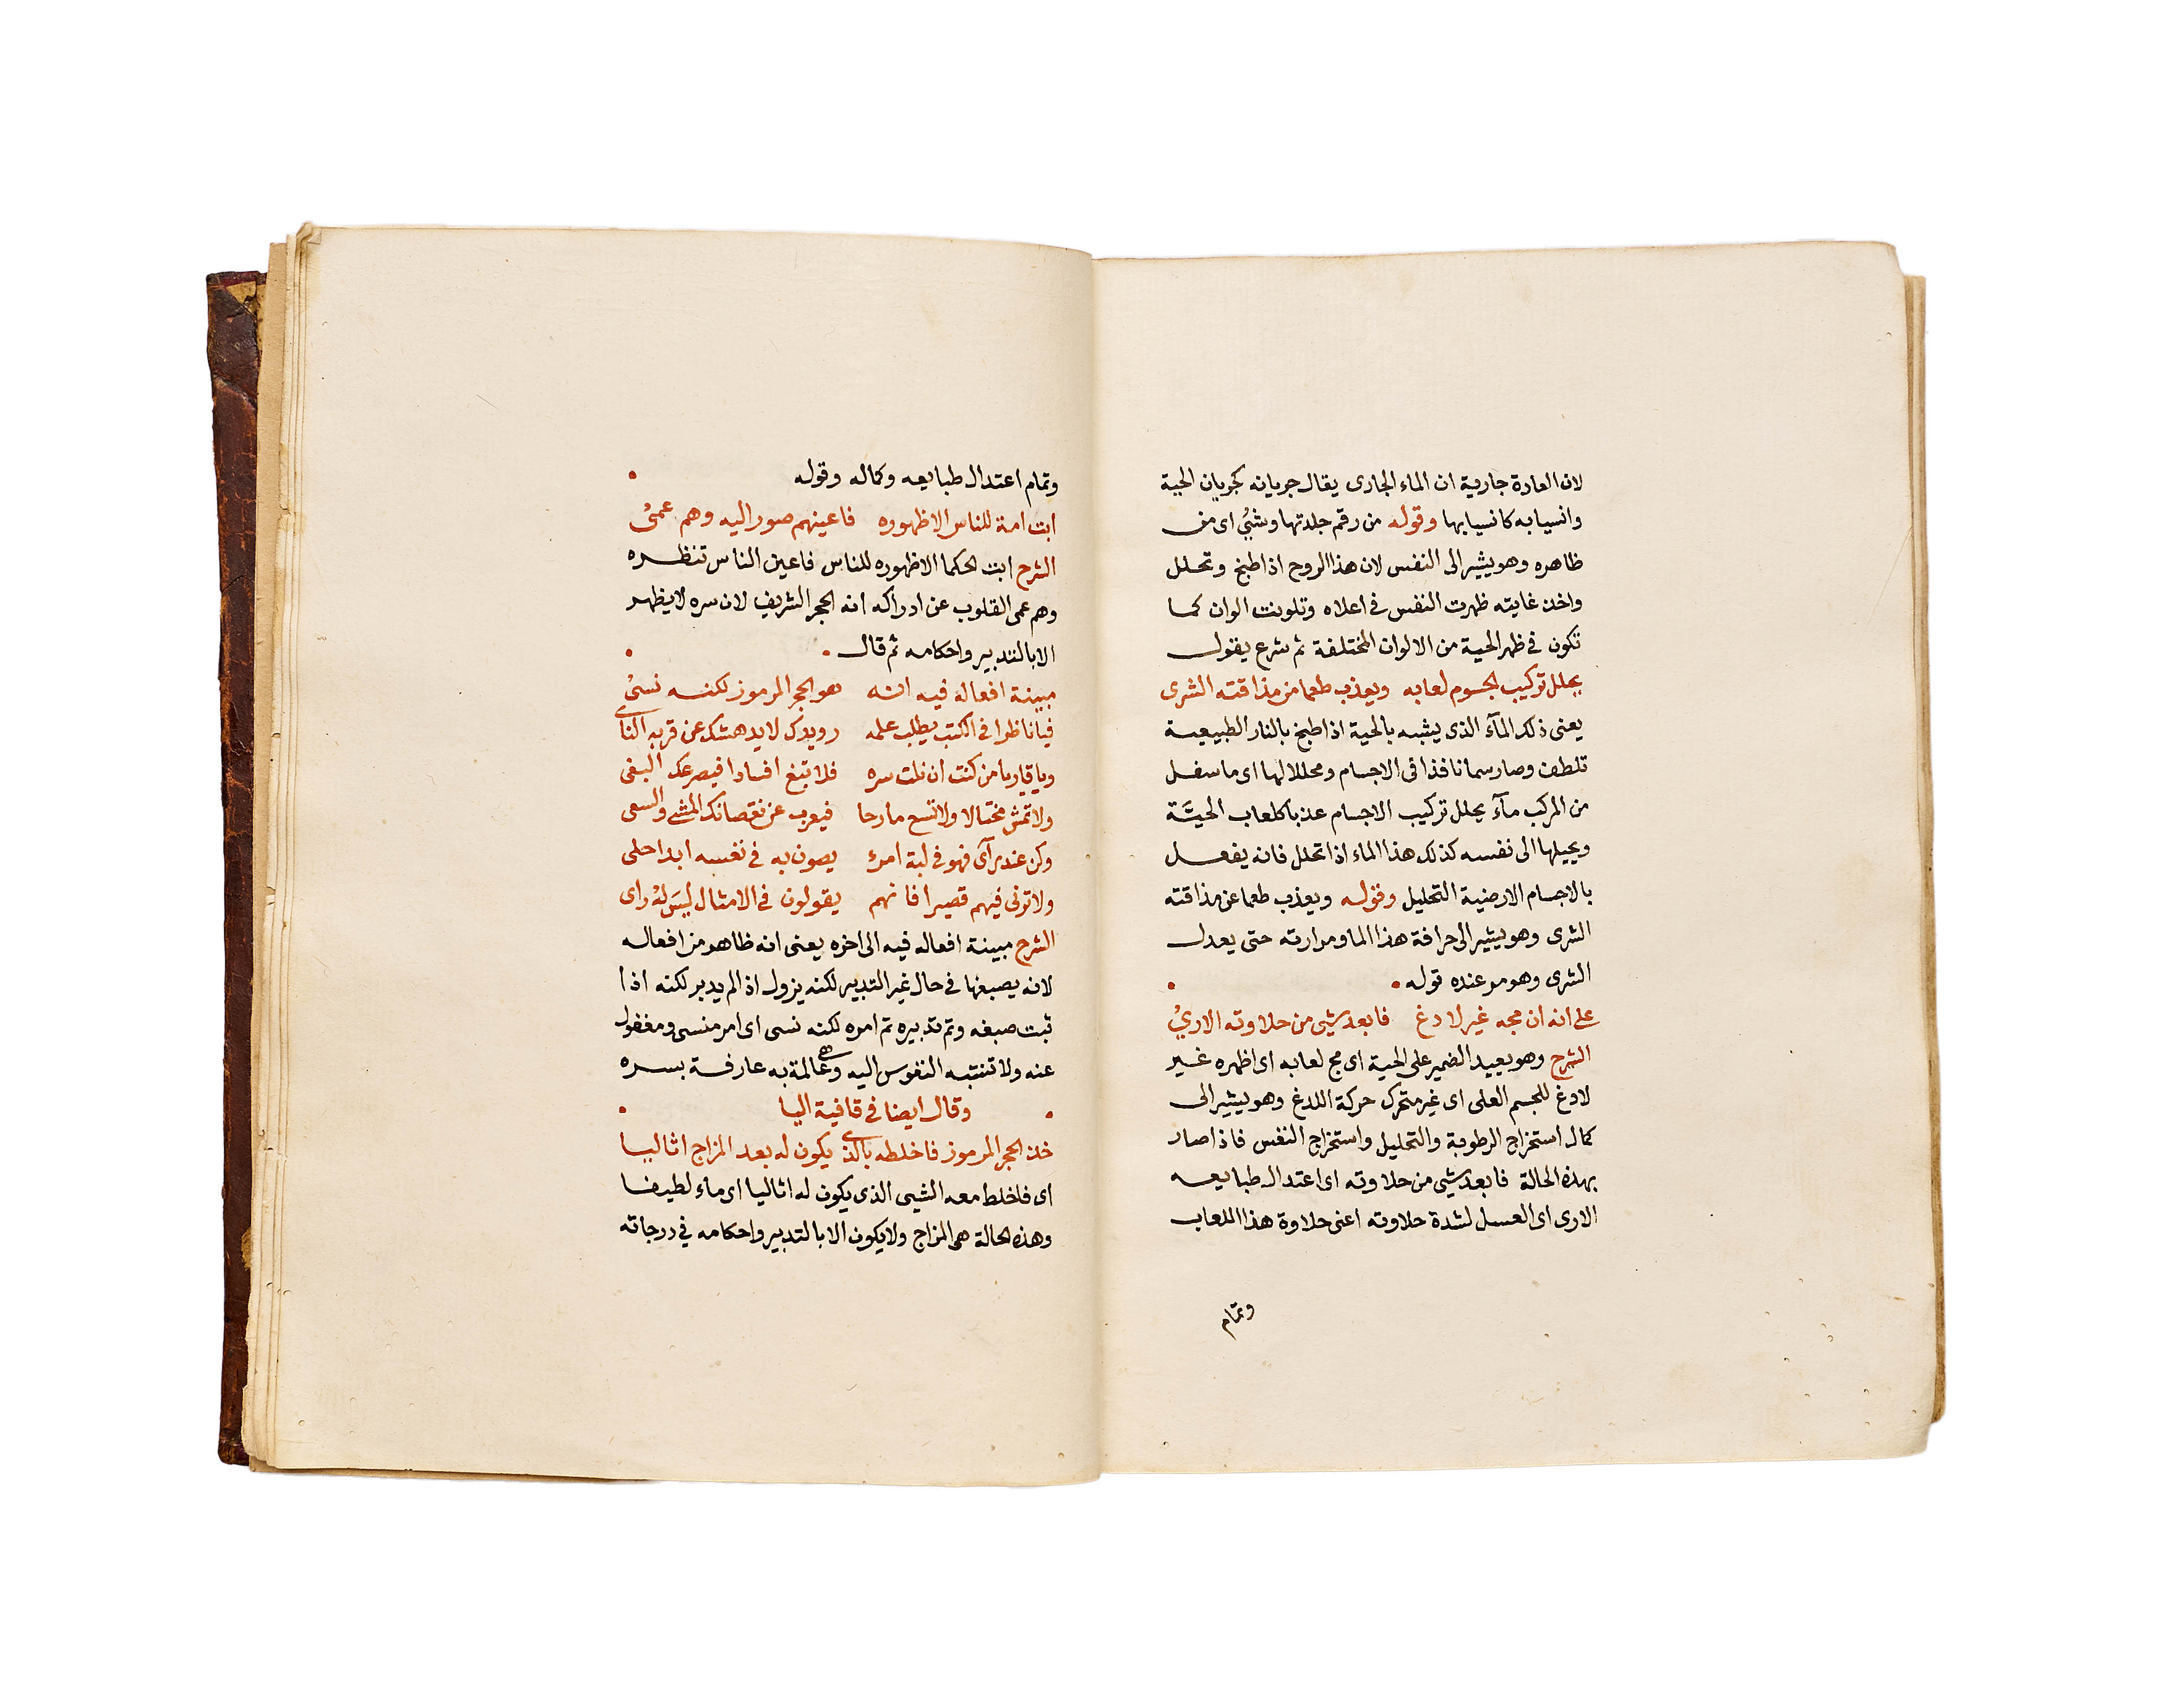 لان العادة جارية ان الماء الجارى يقال جريانه كجريان الحية
وانسيابه كانسيابها وقوله من رقم جلدتها وشئ اى من
ظاهره وهو يشير الى النفس لان هذا الروح اذا طبخ وتحلل
واخذ غايته ظهرت النفس فى اعلاه وتلونت الوان كما
تكون فى ظهر الحية من الالوان المختلفة ثم شرع يقول
يحلل تركيب الجسوم لعابه ويعذب طعما من مذاقته الشرى
يعنى ذلك المآء الذى يشبه بالحية اذا طبخ بالنار الطبيعية
تلطف وصار سما نافذا فى الاجسام ومحللا لها اى ما سفل
من المركب مآء يحلل تركيب الاجسام عذبا كلعاب الحيَّة
ويحيلها الى نفسه كذلك هذا الماء اذا تحلل فانه يفعل
بالاجسام الارضية التحليل وقوله ويعذب طعما عن مذاقته
الشرى وهو يشير الى حرافة هذا الما ومرارته حتى يعدل
الشرى وهو مر عنده قوله
على انه ان مجه غير لادغ فابعد شى من حلاوته الارىُ
الشرح وهو يعيد الضمير على الحية اى مج لعابه اى اظهره غير
لادغ للجسم العلى اى غير متحرك حركة اللدغ وهو يشير الى
كمال استخراج الرطوبة والتحليل واستخراج النفس فاذا صار
بهذه الحالة فابعد شى من حلاوته اى اعتدال طبايعه
الارى اى العسل لشدة حلاوته اعنى حلاوة هذا اللعاب
وتمام
وتمام اعتدال طبايعه وكماله وقوله
ابت امة للناس الا ظهوره فاعينهم صور اليه وهم عمىُ
الشرح ابت الحكما الا ظهوره للناس فاعين الناس تنظره
وهم عمى القلوب عن ادراكه انه الحجر الشريف لان سره لا يظهر
الا بالتدبير واحكامه ثم قال
مبينة افعاله فيه انه هو الحجر المرموز لكنه نسىُ
فيا ناظرا فى الكتب يطلب علمه رويدك لا يدهشك عن قربه الناى
ويا قاريا من كنت ان نلت سره فلا تبغ افسادا فيصرعك البغى
ولا تمش مختالا ولا تسع مارحا فيعرب عن نقصانك المشى والسعى
وكن عند رآى فهو فى لبة امرء يصون به فى نفسه ابدا حلى
ولا ترنى فيهم قصيرا فانهم يقولون فى الامثال ليسَ لهُ راى
الشرح مبينة افعاله فيه الى اخره يعنى انه ظاهر من افعاله
لانه يصبغها فى حال غير التدبير لكنه يزول اذ الم يدبر لكنه اذا
ثبت صبغه وتم تدبيره تم امره لكنه نسى اى امر منسى ومغفول
عنه ولا تنتبه النفوس اليه وهى عالمة به عارفة بسره
وقال ايضا فى قافية اليا
خذ الحجر المرموز فاخلطه بالذى يكون له بعد المزاج اثاليا
اى فاخلط معه الشى الذى يكون له اثاليا اى ماء لطيفا
وهذه الحالة هى المزاج ولا يكون الا بالتدبير واحكامه فى درجاته